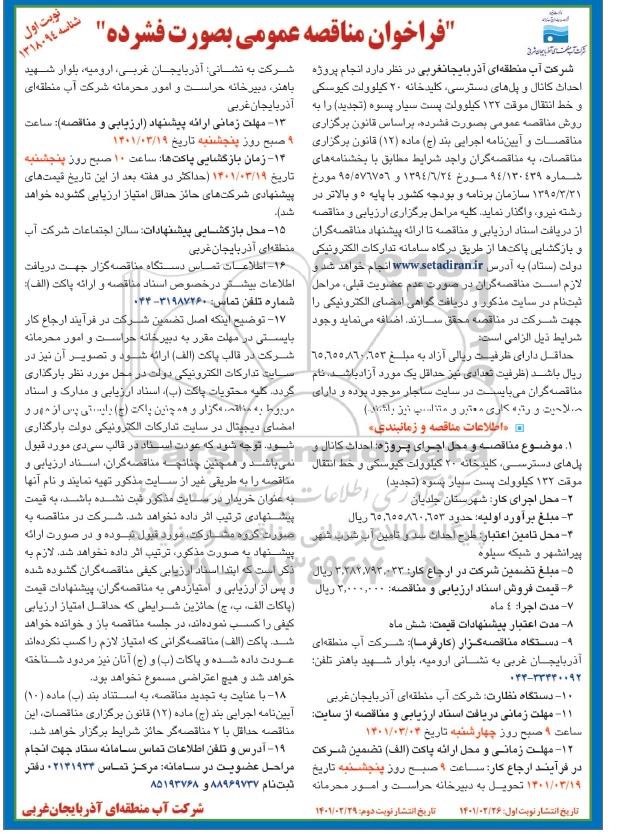 نوبت اول
شناسه ۱۳۱۸۰۹۴
"فراخوان مناقصه عمومی بصورت فشرده"
شرکت آب منطقه‌ای آذربایجان غربی
شرکت آب منطقه‌ای آذربایجانغربی در نظر دارد انجام پروژه
احداث کانال و پل‌های دسترسی، کلیدخانه ۲۰ کیلوولت کیوسکی
و خط انتقال موقت ۱۳۲ کیلوولت پست سیار پسوه (تجدید) را به
روش مناقصه عمومی بصورت فشرده، براساس قانون برگزاری
مناقصات و آیین‌نامه اجرایی بند (ج) ماده (۱۲) قانون برگزاری
مناقصات، به مناقصه‌گران واجد شرایط مطابق با بخشنامه‌های
شماره ۹۴/۱۳۰۴۳۹ مورخ ۱۳۹۴/۶/۲۴ و ۹۵/۵۷۶۷۵۶ مورخ
۱۳۹۵/۳/۳۱ سازمان برنامه و بودجه کشور با پایه ۵ و بالاتر در
رشته نیرو، واگذار نماید. کلیه مراحل برگزاری ارزیابی و مناقصه
از دریافت اسناد ارزیابی و مناقصه تا ارائه پیشنهاد مناقصه‌گران
و بازگشایی پاکت‌ها از طریق درگاه سامانه تدارکات الکترونیکی
دولت (ستاد) به آدرس www.setadiran.ir انجام خواهد شد و
لازم است مناقصه‌گران در صورت عدم عضویت قبلی، مراحل
ثبت‌نام در سایت مذکور و دریافت گواهی امضای الکترونیکی را
جهت شرکت در مناقصه محقق سازند. اضافه می‌نماید وجود
شرایط ذیل الزامی است:
حداقل دارای ظرفیت ریالی آزاد به مبلغ ۶۵,۶۵۵,۸۶۰,۶۵۳
ریال باشد (ظرفیت تعدادی نیز حداقل یک مورد آزادباشد، نام
مناقصه‌گران می‌بایست در سایت ساجار موجود بوده و دارای
صلاحیت و رتبه کاری معتبر و متناسب نیز باشند.)
«اطلاعات مناقصه و زمانبندی»
۱. موضوع مناقصه و محل اجرای پروژه: احداث کانال و
پل‌های دسترسی، کلیدخانه ۲۰ کیلوولت کیوسکی و خط انتقال
موقت ۱۳۲ کیلوولت پست سیار پسوه (تجدید)
۲- محل اجرای کار: شهرستان جلدیان
۳- مبلغ برآورد اولیه: حدود ۶۵,۶۵۵,۸۶۰,۶۵۳ ریال
۴- محل تامین اعتبار: طرح احداث سد و تامین آب شرب شهر
پیرانشهر و شبکه سیلوه
۵- مبلغ تضمین شرکت در ارجاع کار: ۳,۲۸۲,۷۹۳,۰۳۳ ریال
۶- قیمت فروش اسناد ارزیابی و مناقصه: ۳,۰۰۰,۰۰۰ ریال
۷- مدت اجرا: ۴ ماه
۸- مدت اعتبار پیشنهادات قیمت: شش ماه
۹- دستگاه مناقصه‌گزار (کارفرما): شرکت آب منطقه‌ای
آذربایجان غربی به نشانی ارومیه، بلوار شهید باهنر تلفن:
۰۴۴-۳۳۴۴۰۰۹۲
۱۰- دستگاه نظارت: شرکت آب منطقه‌ای آذربایجان‌غربی
۱۱- مهلت زمانی دریافت اسناد ارزیابی و مناقصه از سایت:
ساعت ۹ صبح روز چهارشنبه تاریخ ۱۴۰۱/۰۳/۰۴
۱۲- مهلت زمانی و محل ارائه پاکت (الف) تضمین شرکت
در فرآیند ارجاع کار: ساعت ۹ صبح روز پنجشنبه تاریخ
۱۴۰۱/۰۳/۱۹ تحویل به دبیرخانه حراست و امور محرمانه
شرکت به نشانی: آذربایجان غربی، ارومیه، بلوار شهید
باهنر، دبیرخانه حراست و امور محرمانه شرکت آب منطقه‌ای
آذربایجان‌غربی
۱۳- مهلت زمانی ارائه پیشنهاد (ارزیابی و مناقصه): ساعت
۹ صبح روز پنجشنبه تاریخ ۱۴۰۱/۰۳/۱۹
۱۴- زمان بازگشایی پاکت‌ها: ساعت ۱۰ صبح روز پنجشنبه
تاریخ ۱۴۰۱/۰۳/۱۹ (حداکثر دو هفته بعد از این تاریخ قیمت‌های
پیشنهادی شرکت‌های حائز حداقل امتیاز ارزیابی گشوده خواهد
شد).
۱۵- محل بازگشایی پیشنهادات: سالن اجتماعات شرکت آب
منطقه‌ای آذربایجان‌غربی
۱۶- اطلاعات تماس دستگاه مناقصه‌گزار جهت دریافت
اطلاعات بیشتر درخصوص اسناد مناقصه و ارائه پاکت (الف):
شماره تلفن تماس: ۳۱۹۸۷۲۶۰-۰۴۴
۱۷- توضیح اینکه اصل تضمین شرکت در فرآیند ارجاع کار
بایستی در مهلت مقرر به دبیرخانه حراست و امور محرمانه
شرکت در قالب پاکت (الف) ارائه شود و تصویر آن نیز در
سایت تدارکات الکترونیکی دولت در محل مورد نظر بارگذاری
گردد. کلیه محتویات پاکت (ب)، اسناد ارزیابی و مدارک و اسناد
مربوط به مناقصه‌گزار و همچنین پاکت (ج) بایستی پس از مهر و
امضای دیجیتال در سایت تدارکات الکترونیکی دولت بارگذاری
شود. توجه شود که عودت اسناد در قالب سی‌دی مورد قبول
نمی‌باشد و همچنین چنانچه مناقصه‌گران، اسناد ارزیابی و
مناقصه را به طریقی غیر از سایت مذکور تهیه نمایند و نام آنها
به عنوان خریدار در سایت مذکور ثبت نشده باشد، به قیمت
پیشنهادی ترتیب اثر داده نخواهد شد. شرکت در مناقصه به
صورت گروه مشارکت، مورد قبول نبوده و در صورت ارائه
پیشنهاد به صورت مذکور، ترتیب اثر داده نخواهد شد. لازم به
ذکر است که ابتدا اسناد ارزیابی کیفی مناقصه‌گران گشوده شده
و پس از ارزیابی و امتیازدهی به مناقصه‌گران، پیشنهادات قیمت
(پاکات الف، ب، ج) حائزین شرایطی که حداقل امتیاز ارزیابی
کیفی را کسب نموده‌اند، در جلسه مناقصه باز و خوانده خواهد
شد. پاکت (الف) مناقصه‌گرانی که امتیاز لازم را کسب نکرده‌اند
عودت داده شده و پاکات (ب) و (ج) آنان نیز مردود شناخته
خواهد شد و هیچ اعتراضی مسموع نخواهد بود.
۱۸- با عنایت به تجدید مناقصه، به استناد بند (ب) ماده (۱۰)
آیین‌نامه اجرایی بند (ج) ماده (۱۲) قانون برگزاری مناقصات، این
مناقصه حداقل با ۲ مناقصه‌گر حائز شرایط برگزار خواهد شد.
۱۹- آدرس و تلفن اطلاعات تماس سامانه ستاد جهت انجام
مراحل عضویت در سامانه: مرکز تماس ۰۲۱۴۱۹۳۴ دفتر
ثبت‌نام ۸۸۹۶۹۷۳۷ و ۸۵۱۹۳۷۶۸
تاریخ انتشار نوبت اول: ۱۴۰۱/۰۲/۲۶ تاریخ انتشار نوبت دوم: ۱۴۰۱/۰۲/۲۹
شرکت آب منطقه‌ای آذربایجان‌غربی